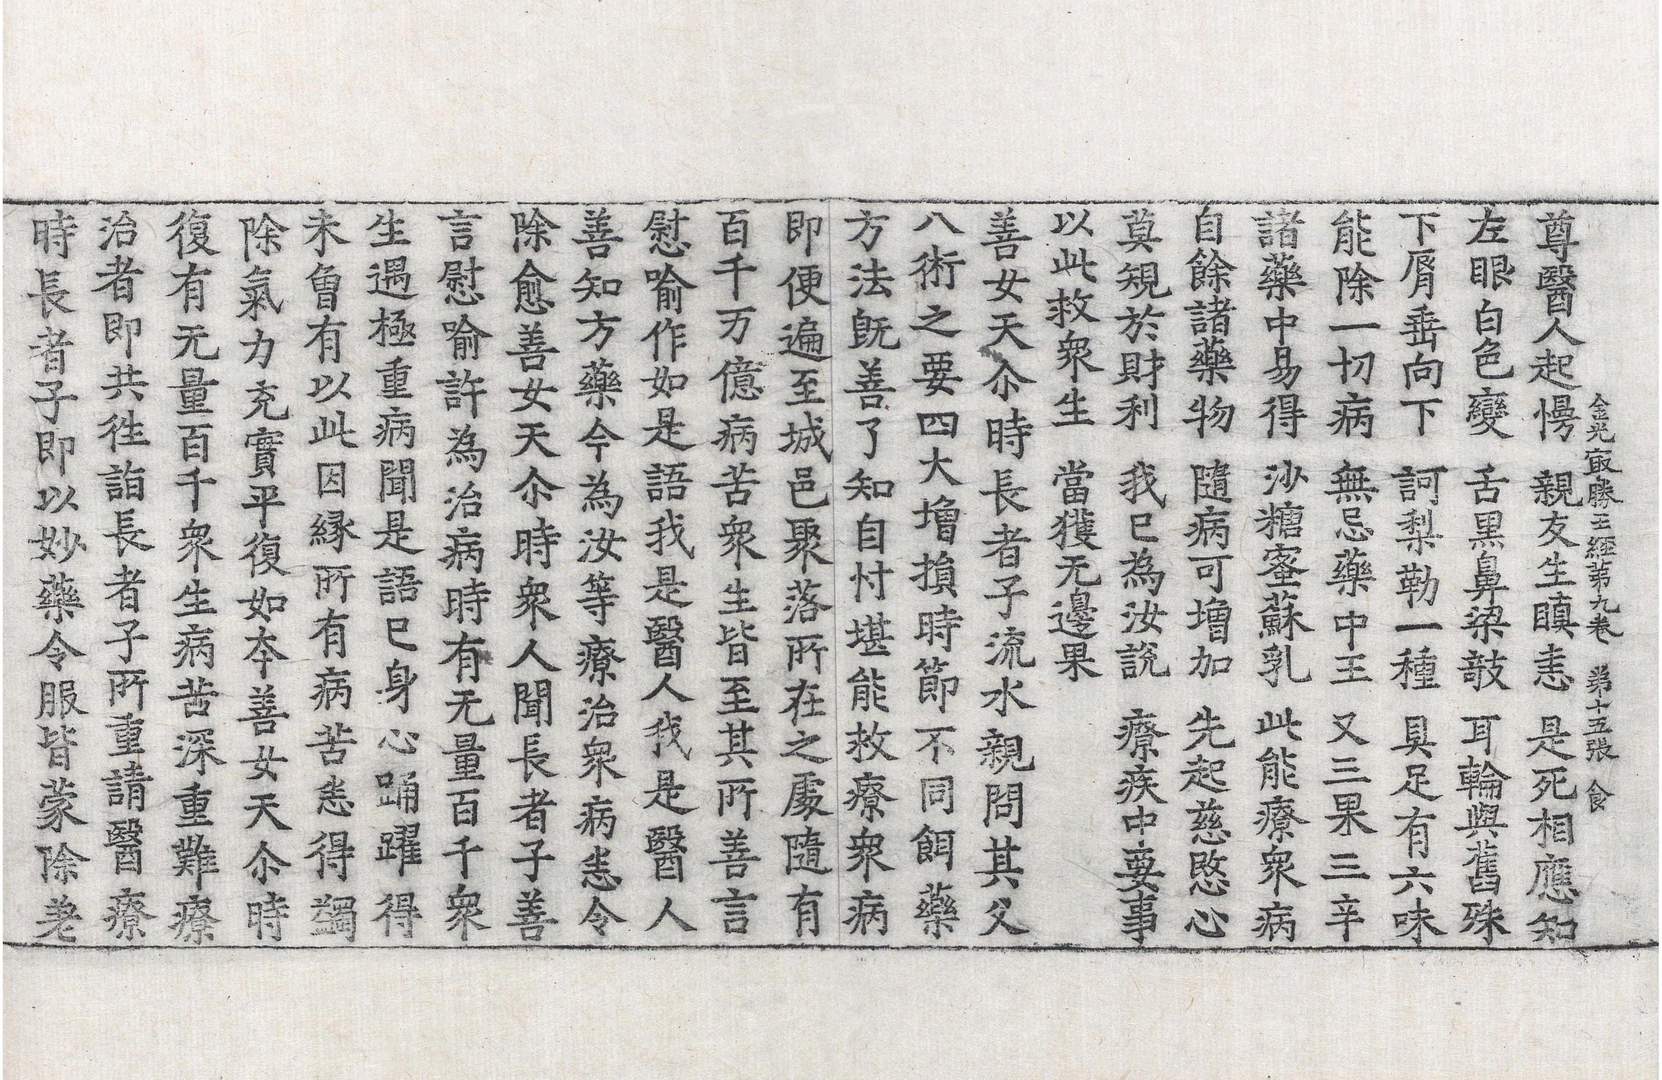 金光㝡勝王經第九卷　第十五張　食
尊醫人起慢　親友生瞋恚　是死相應知
左眼白色變　舌黑鼻梁敧　耳輪與舊殊
下脣垂向下　訶梨勒一種　具足有六味
能除一切病　無忌藥中王　又三果三辛
諸藥中易得　沙糖蜜蘇乳　此能療衆病
自餘諸藥物　隨病可增加　先起慈愍心
莫規於財利　我已為汝說　療疾中要事
以此救衆生　當獲无邊果
善女天尒時長者子流水親問其父
八術之要四大增損時節不同餌藥
方法旣善了知自忖堪能救療衆病
即便遍至城邑聚落所在之處隨有
百千万億病苦衆生皆至其所善言
慰喻作如是語我是醫人我是醫人
善知方藥今為汝等療治衆病悉令
除愈善女天尒時衆人聞長者子善
言慰喻許為治病時有无量百千衆
生遇極重病聞是語已身心踊躍得
未曾有以此因緣所有病苦悉得蠲
除氣力充實平復如本善女天尒時
復有无量百千衆生病苦深重難療
治者即共往詣長者子所重請醫療
時長者子即以妙藥令服皆蒙除差